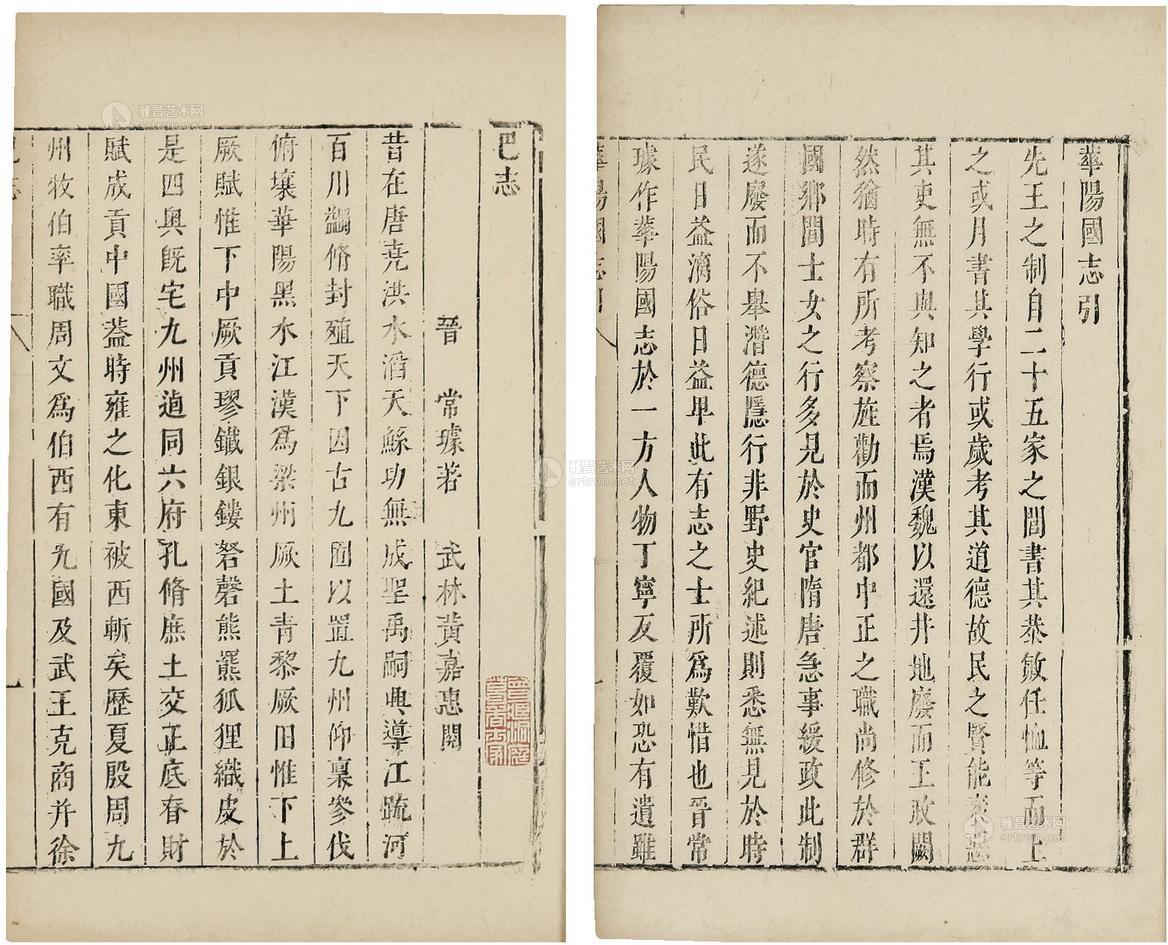 華陽國志引
先王之制自二十五家之閭書其恭敏任恤等而上
之或月書其學行或歲考其道德故民之賢能邪惡
其吏無不與知之者焉漢魏以還井地廢而王政闕
然猶時有所考察旌勸而州都中正之職尚修於群
國鄉閭士女之行多見於史官隋唐急事緩政此制
遂廢而不舉潛德隱行非野史紀述則悉無見於時
民日益漓俗日益卑此有志之士所為歎惜也晉常
璩作華陽國志於一方人物丁寧反覆如恐有遺雖
華陽國志引
巴志
晉 常璩著 武林黃嘉惠閱
昔在唐尭洪水滔天鯀功無成聖禹嗣興導江䟽河
百川蠲脩封殖天下因古九囿以置九州仰稟參伐
俯壤華陽黑水江漢為梁州厥土青黎厥田惟下上
厥賦惟下中厥貢璆鐵銀鏤砮磬熊羆狐狸織皮於
是四奧既宅九州逌同六府孔脩庶土交正厎眘財
賦成貢中國葢時雍之化東被西漸矣歷夏殷周九
州牧伯率職周文為伯西有九國及武王克商并徐
雅昌艺术网
雅昌艺术网
artron.net
雅昌艺术网
artron.net